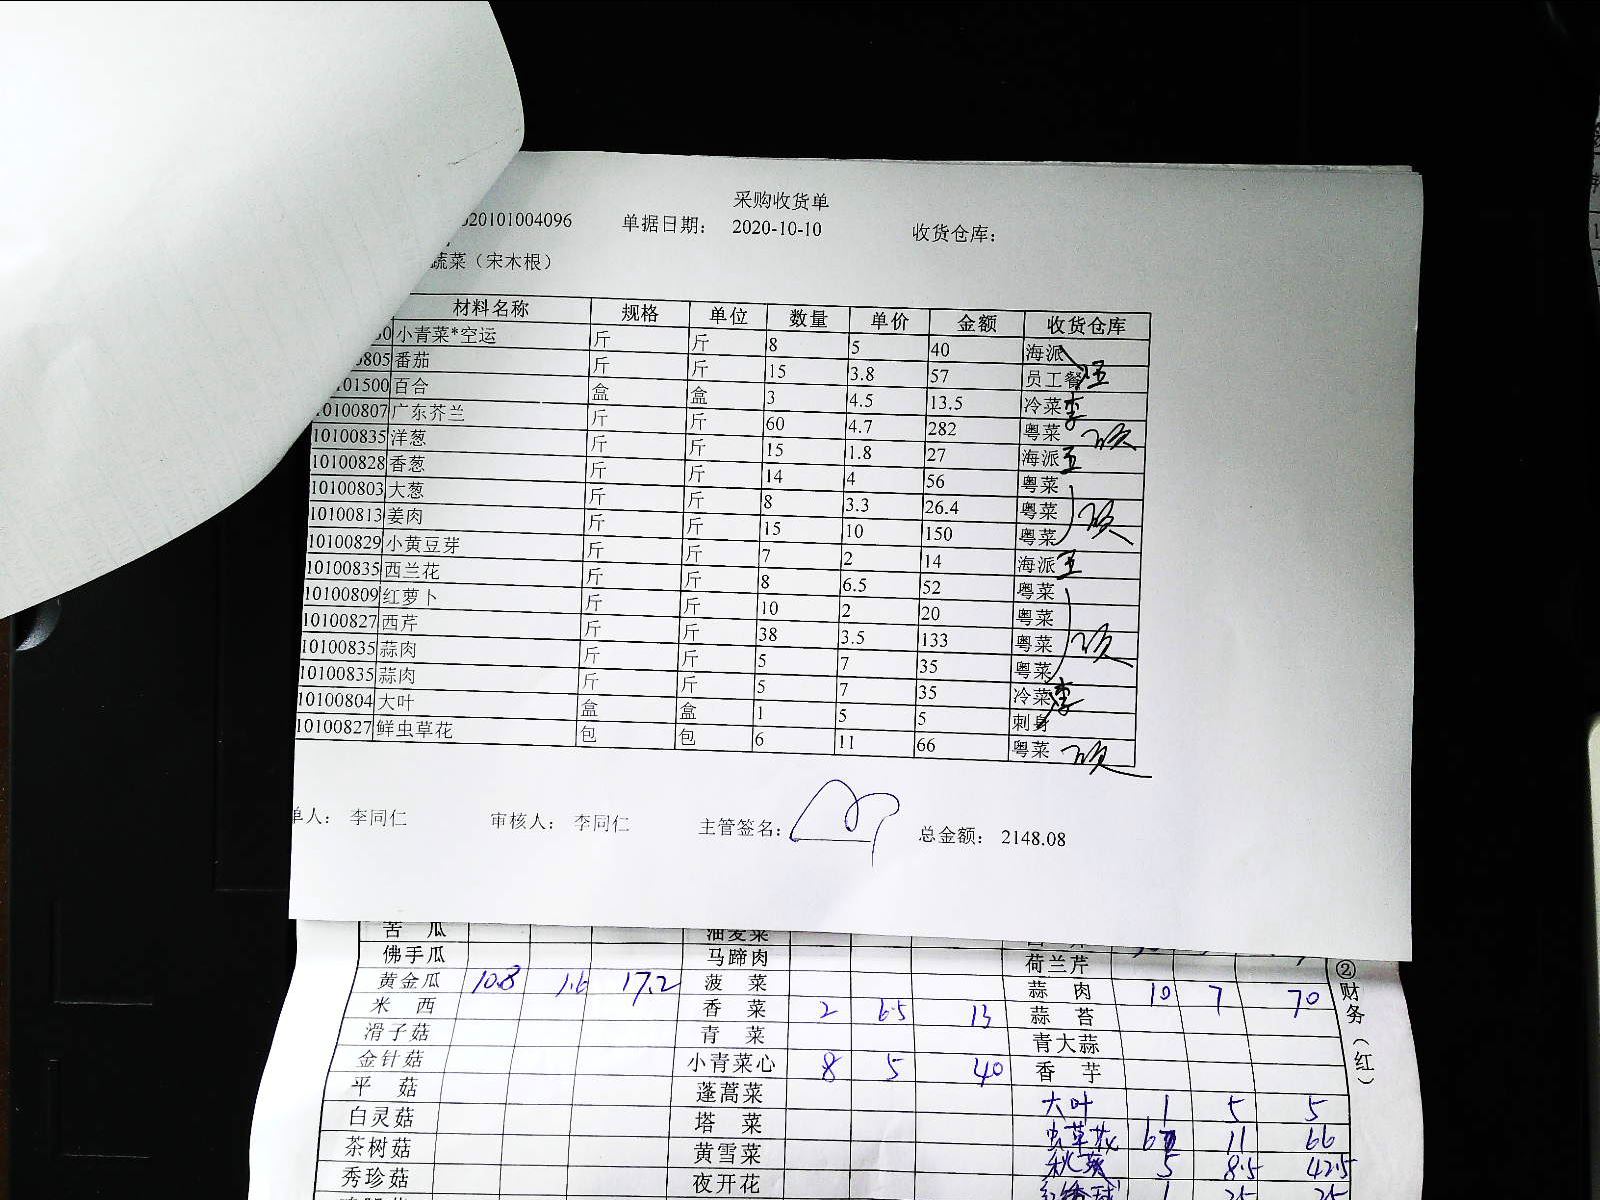 采购收货单
020101004096 单据日期： 2020-10-10 收货仓库：
蔬菜（宋木根）
材料名称 规格 单位 数量 单价 金额 收货仓库
小青菜*空运 斤 斤 8 5 40 海派
805 番茄 斤 斤 15 3.8 57 员工餐
101500 百合 盒 盒 3 4.5 13.5 冷菜 李
10100807 广东芥兰 斤 斤 60 4.7 282 粤菜
10100835 洋葱 斤 斤 15 1.8 27 海派
10100828 香葱 斤 斤 14 4 56 粤菜
10100803 大葱 斤 斤 8 3.3 26.4 粤菜
10100813 姜肉 斤 斤 15 10 150 粤菜
10100829 小黄豆芽 斤 斤 7 2 14 海派
10100835 西兰花 斤 斤 8 6.5 52 粤菜
10100809 红萝卜 斤 斤 10 2 20 粤菜
10100827 西芹 斤 斤 38 3.5 133 粤菜
10100835 蒜肉 斤 斤 5 7 35 粤菜
10100835 蒜肉 斤 斤 5 7 35 冷菜 李
10100804 大叶 盒 盒 1 5 5 刺身
10100827 鲜虫草花 包 包 6 11 66 粤菜
单人： 李同仁 审核人： 李同仁 主管签名： 总金额： 2148.08
苦瓜 油麦菜
佛手瓜 马蹄肉 荷兰芹
黄金瓜 10.8 1.6 17.2 菠菜 蒜肉 10 7 70
米西 香菜 2 6.5 13 蒜苔
滑子菇 青菜 青大蒜
金针菇 小青菜心 8 5 40 香芋
平菇 蓬蒿菜 大叶 1 5 5
白灵菇 塔菜 虫草花 6 11 66
茶树菇 黄雪菜 秋葵 5 8.5 42.5
秀珍菇 夜开花 1 25 25
②财务（红）